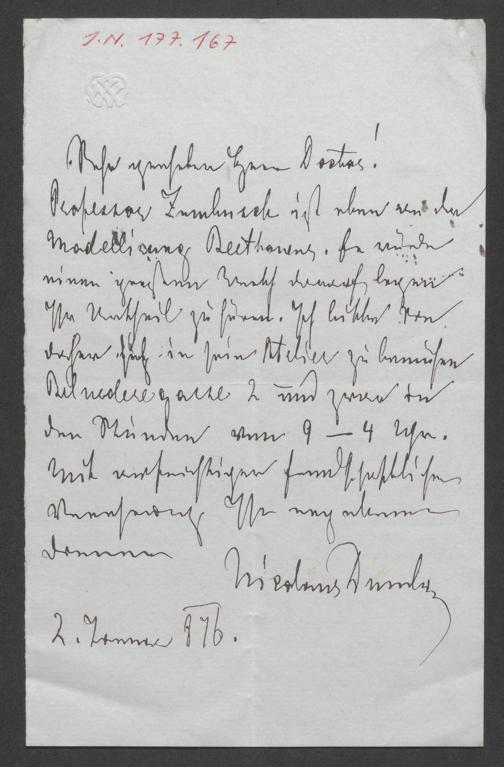 I.N. 177.167
Sehr geehrter Herr Doctor!
Professor Zumbusch ist eben an der
Modellirung Beethovens. Er würde
einen großen Werth darauf legen
Ihr Urtheil zu hören. Ich bitte Sie
daher sich in sein Atelier zu bemühen
Belvederegasse 2 und zwar in
den Stunden von 9 – 4 Uhr.
Mit aufrichtiger freundschaftlicher
Verehrung Ihr ergebener
Nicolaus Dumba
2. Januar 876.